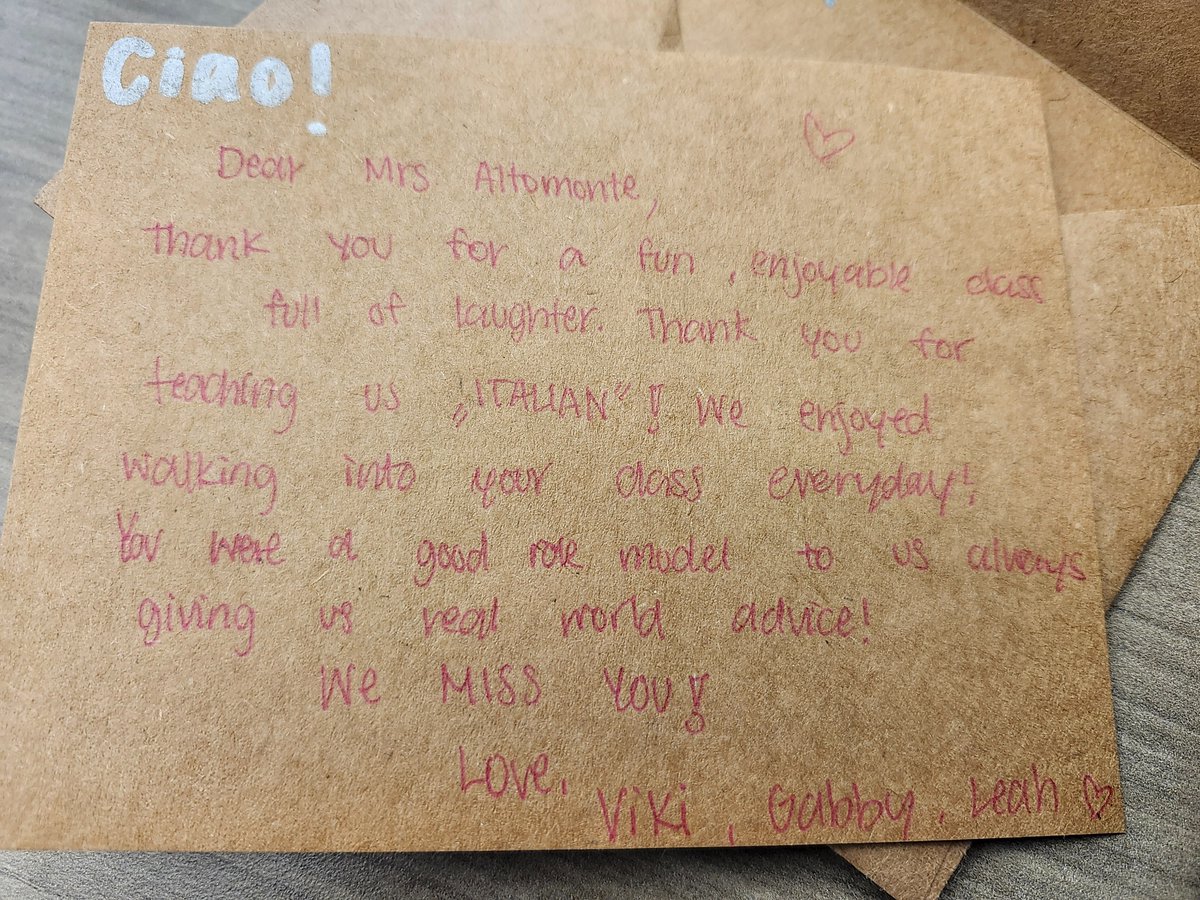 Ciao!
Dear Mrs. Altomonte,
Thank you for a fun, enjoyable class
full of laughter. Thank you for
teaching us „ITALIAN”! We enjoyed
walking into your class everyday!
You were a good role model to us always
giving us real world advice!
We MISS YOU!
Love,
Viki, Gabby, Leah